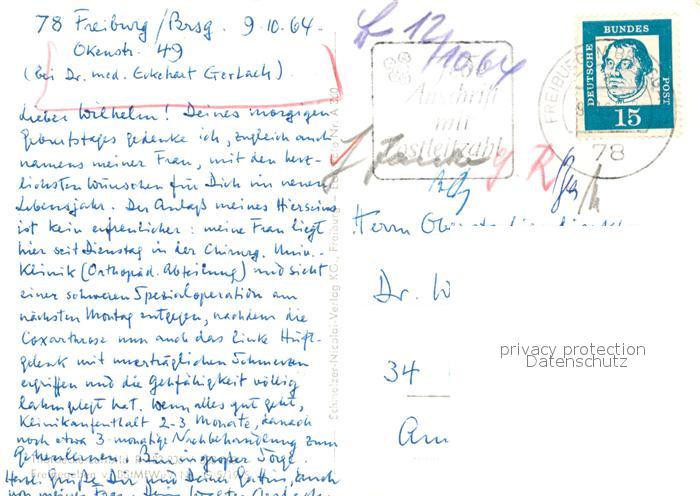 78 Freiburg/Brsg. 9.10.64.
Okenstr. 49
(bei Dr. med. Eckehart Gerlach).
Lieber Wilhelm! Deines morgigen
Geburtstages gedenke ich, zugleich auch
namens meiner Frau, mit den herz-
lichsten Wünschen für Dich im neuen
Lebensjahr. Der Anlaß meines Hierseins
ist kein erfreulicher: meine Frau liegt
hier seit Dienstag in der Chirurg. Univ.-
Klinik (Orthopäd. Abteilung) und sieht
einer schweren Spezialoperation am
nächsten Montag entgegen, nachdem die
Coxarthrose nun auch das linke Hüft-
gelenk mit unerträglichen Schmerzen
ergriffen und die Gehfähigkeit völlig
lahmgelegt hat. Wenn alles gut geht,
Klinikaufenthalt 2-3 Monate, danach
noch etwa 3-monatige Nachbehandlung zum
Gehenlernen. Bin in großer Sorge.
Herzl. Grüße Dir und Deiner Gattin, auch
von meiner Frau. Dein
Schnelzer-Nicolai-Verlag KG., Freiburg
12/10 64
Anschrift
mit
Postleitzahl
FREIBURG
78
DEUTSCHE BUNDES POST
15
Herrn
Dr. W
34
Am
privacy protection
Datenschutz